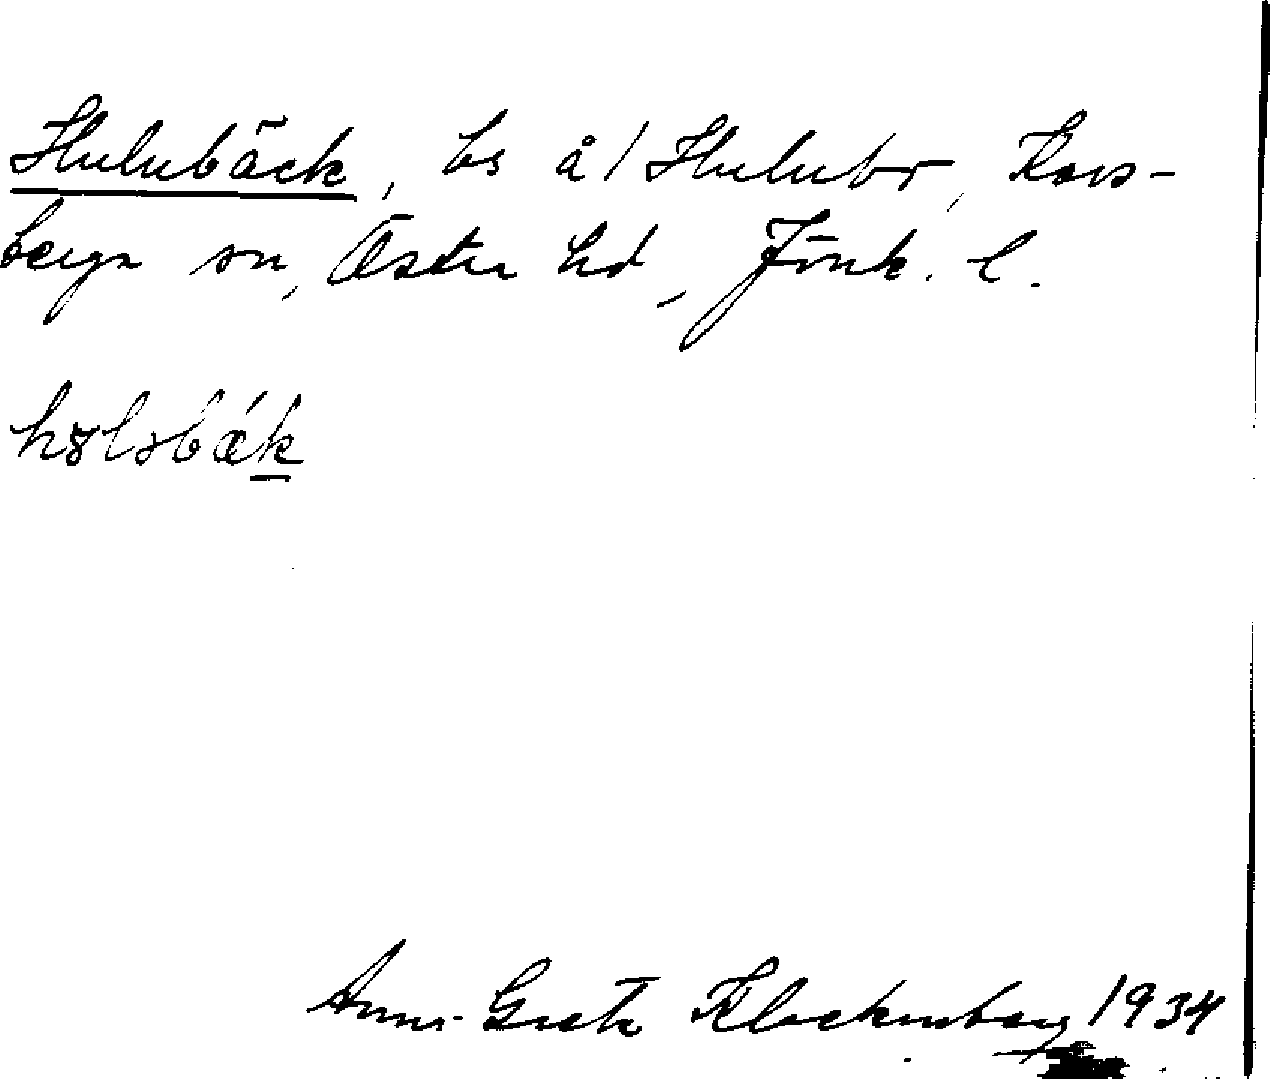 Hulubäck, ls å/Hulubr, Kors-
berga sn, Östra hd, Jönk. l.
Anna-Greta Klockenberg 1934